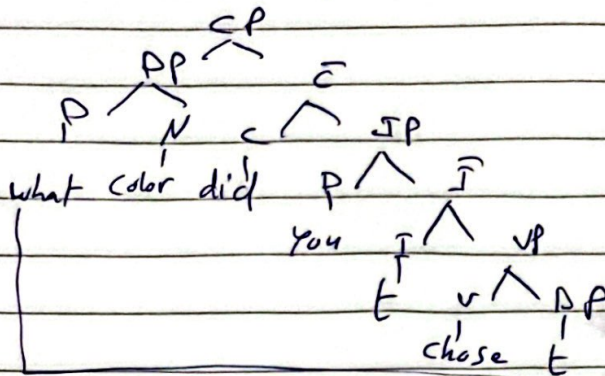 CP
DP C̄
D N C IP
what color did D Ī
you I VP
t V DP
chose t